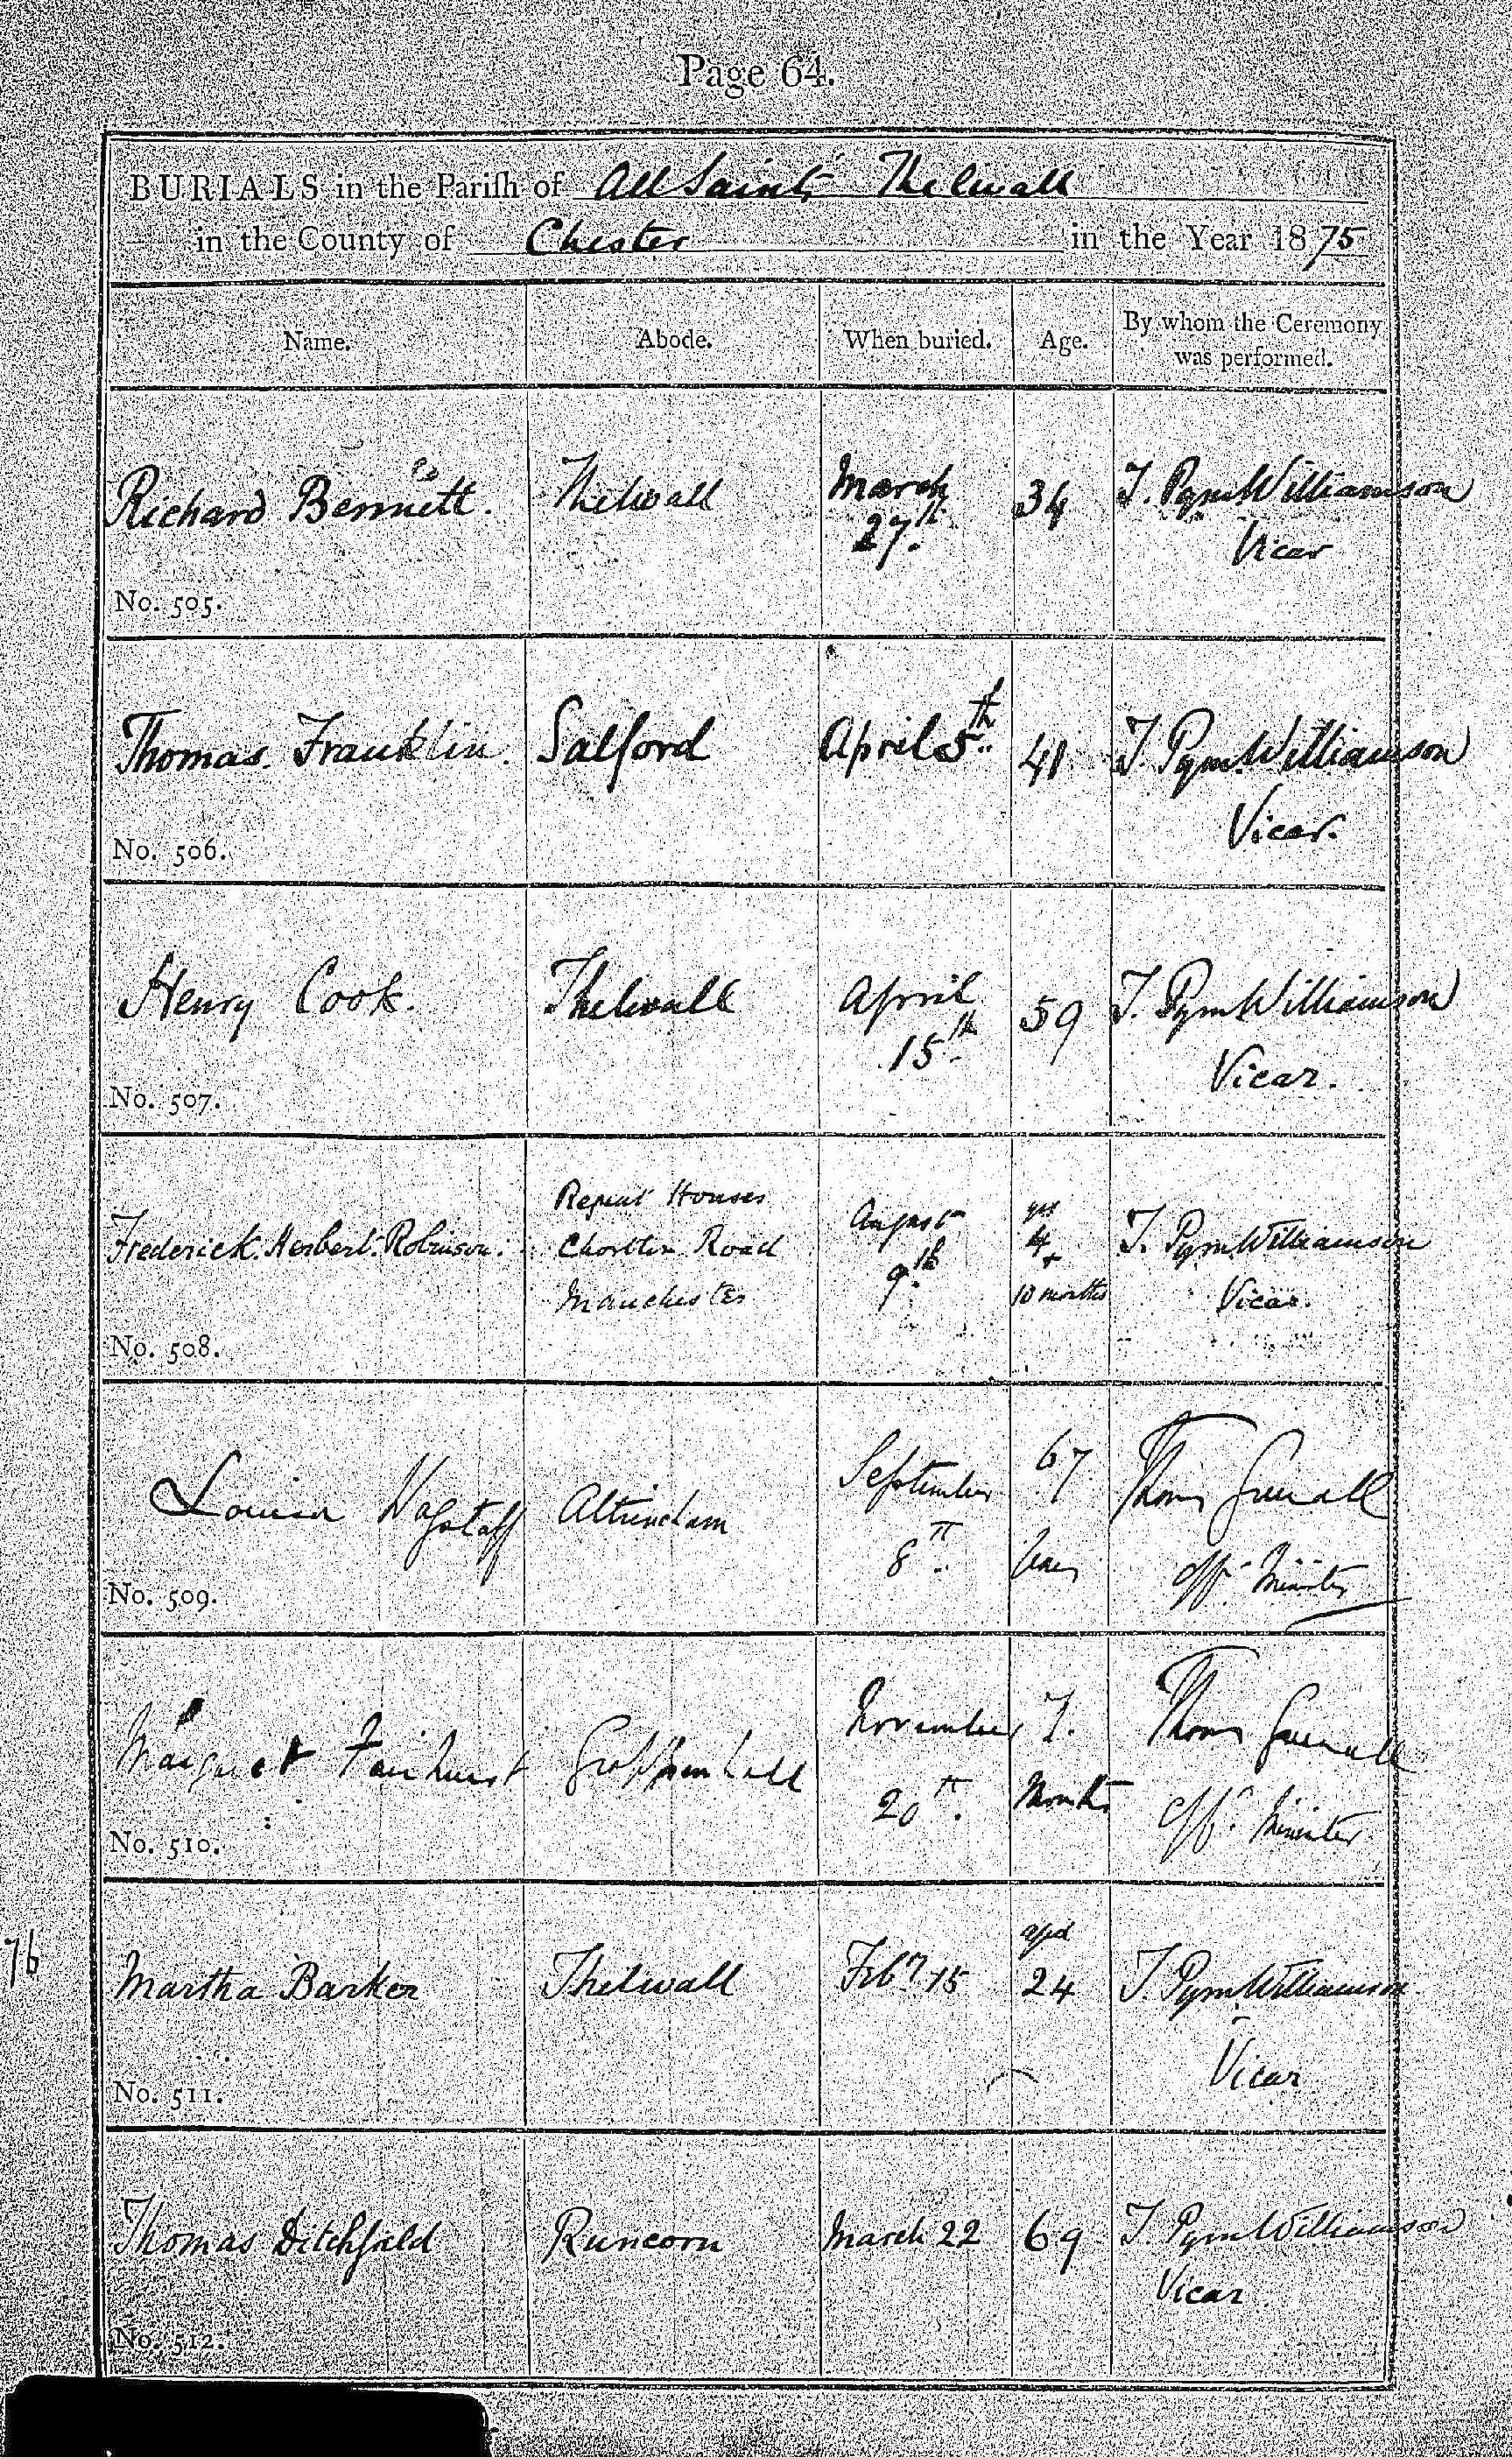 Page 64.
BURIALS in the Parish of All Saints Thelwall
in the County of Chester in the Year 1875
Name. Abode. When buried. Age. By whom the Ceremony
was performed.
Richard Bennett. Thelwall March 34 T. Pym Williamson
27th. Vicar
No. 505.
Thomas Franklin. Salford April 5th 41 T. Pym Williamson
Vicar.
No. 506.
Henry Cook. Thelwall April 59 T. Pym Williamson
15th Vicar.
No. 507.
Houses yrs
Frederick Herbert Robinson. Chorlton Road August 4 T. Pym Williamson
Manchester 9th + 10 months Vicar.
No. 508.
Louisa Wagstaff Altrincham September 67 Thomas
8th Years Off. Minister
No. 509.
Margaret Fairhurst Grappenhall November 7. Thomas
20th. Months Off. Minister
No. 510.
aged
76 Martha Barker Thelwall Feby 15 24 T. Pym Williamson
Vicar
No. 511.
Thomas Ditchfield Runcorn March 22 69 T. Pym Williamson
Vicar
No. 512.